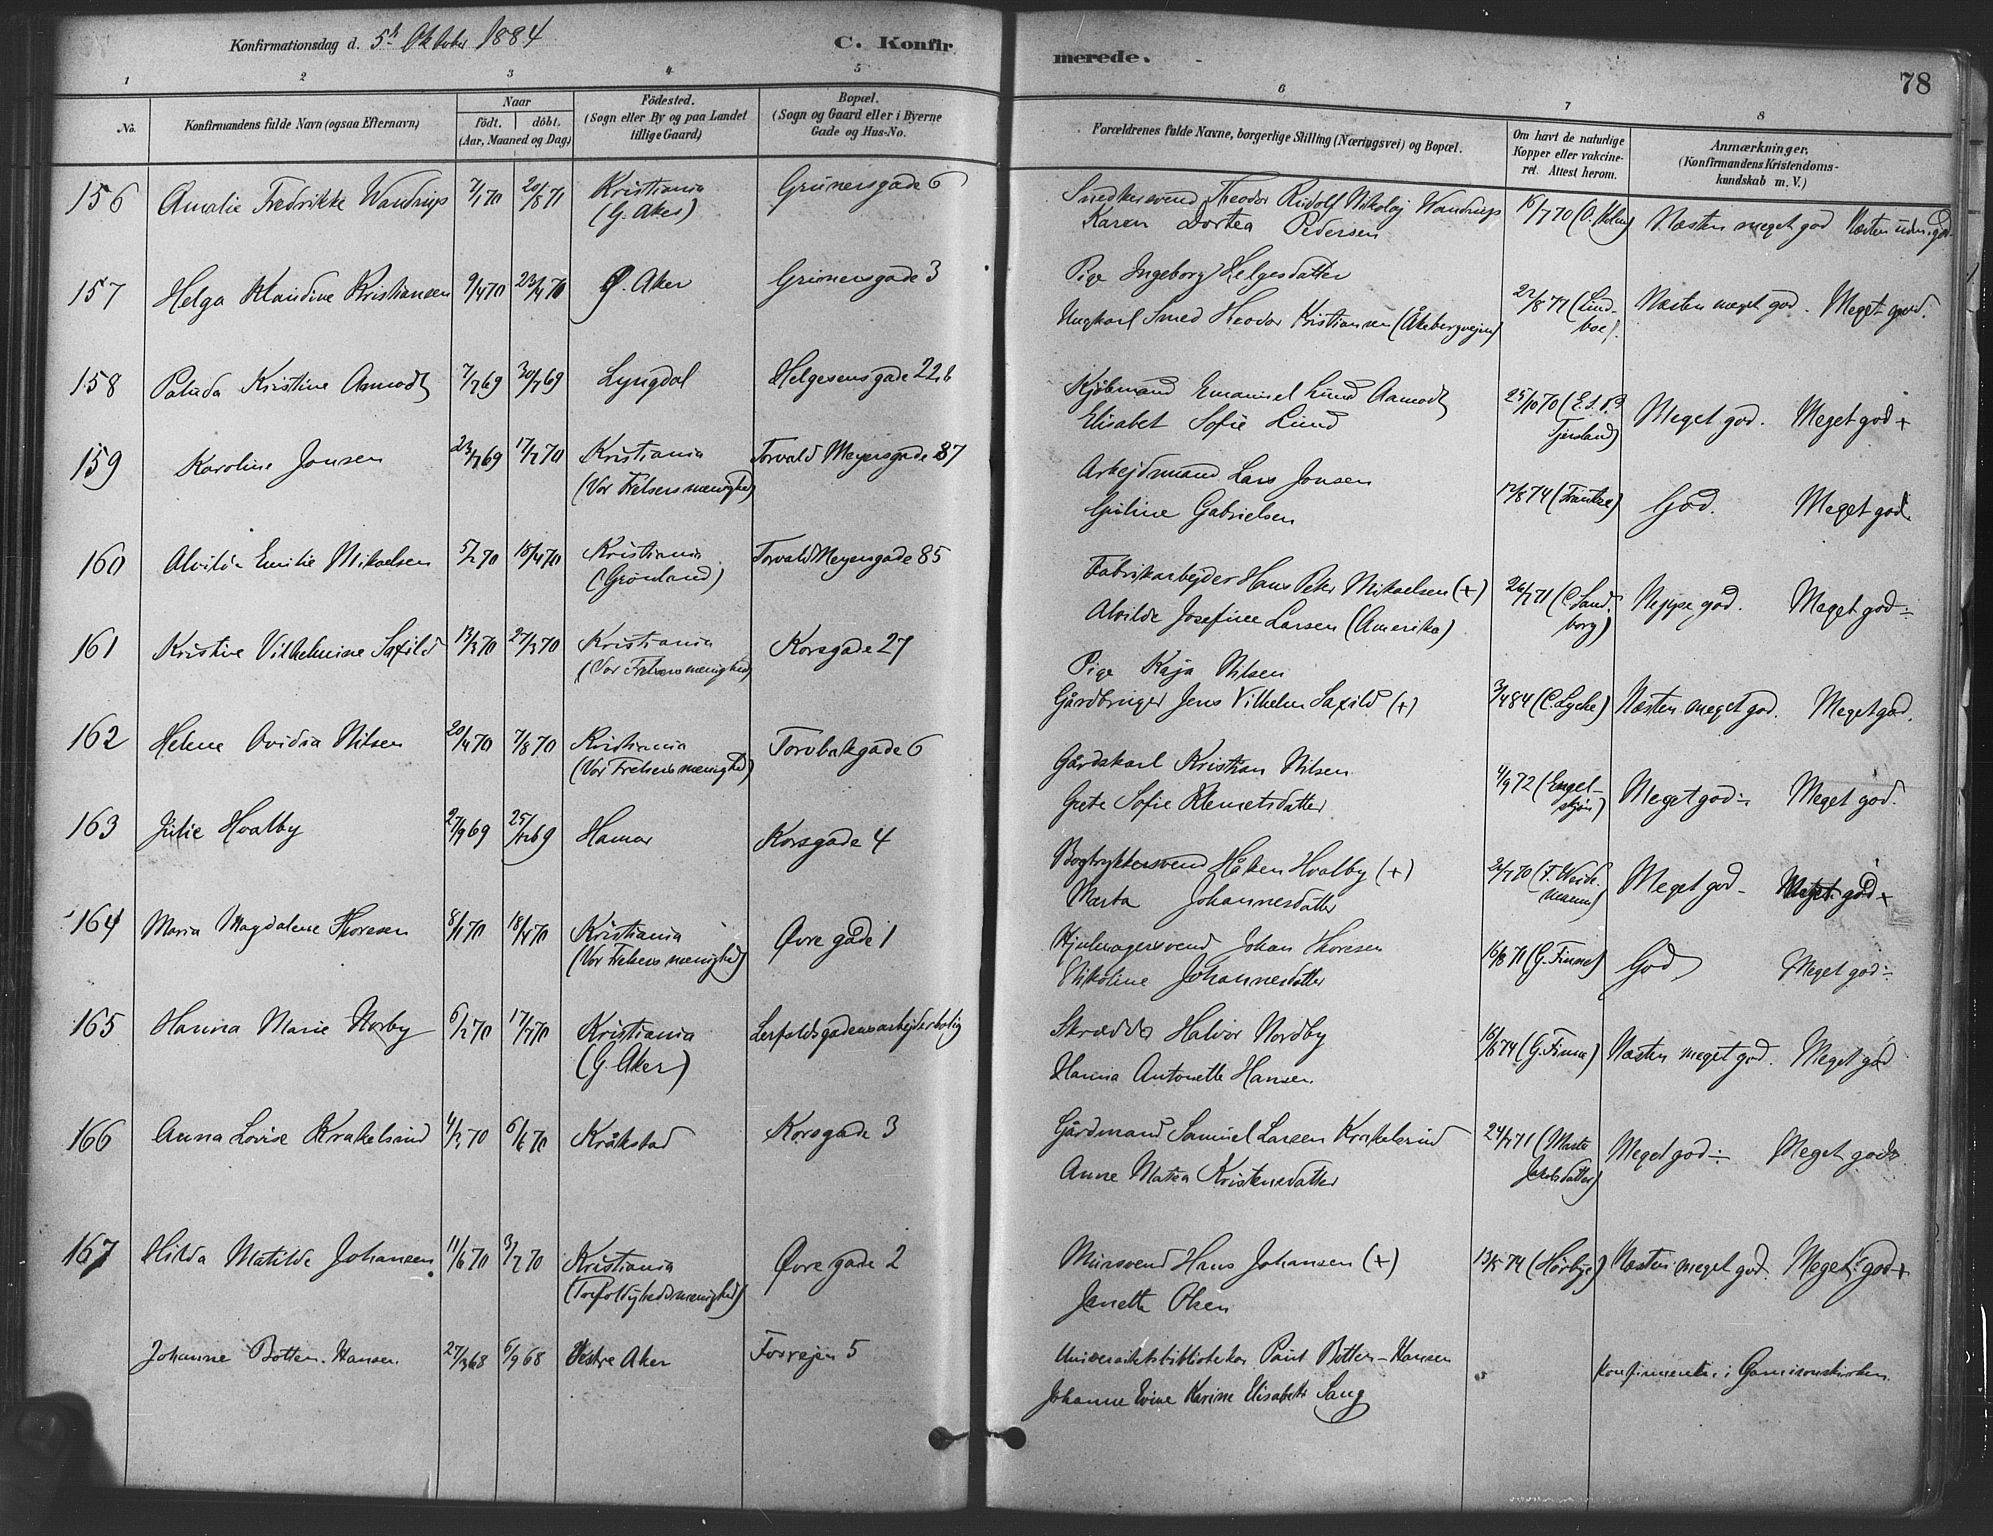 Konfirmationsdag d. 5te Oktober 1884
C. Konfir
merede.
78
1 2 3 4 5 6 7 8
No. Konfirmandens fulde Navn (ogsaa Efternavn) Naar födt. döbt. (Aar, Maaned og Dag) Födested. (Sogn eller By og paa Landet tillige Gaard) Bopæl. (Sogn og Gaard eller i Byerne Gade og Hus-No. Forældrenes fulde Navne, borgerlige Stilling (Næringsvei) og Bopæl. Om havt de naturlige Kopper eller vakcineret. Attest herom. Anmærkninger. (Konfirmandens Kristendomskundskab m. V.)
156 Amalie Fredrikke Wandrup 7/1 70 20/8 71 Kristiania Grünersgade 6 Snedkersvend Theodor Rudolf Nikolaj Wandrup 15/7 70 (O. Holm) Næsten meget god Næsten udm. god
(G. Aker) Karen Dortea Pedersen
157 Helga Klaudine Kristiansen 9/4 70 23/4 70 G. Aker Grünersgade 3 Pige Ingeborg Helgesdatter 22/8 71 (Lind- Næsten meget god. Meget god.
Ungkarl Smed Theodor Kristiansen (Åkebergvejen) boe).
158 Paluda Kristine Aamodt 7/7 69 30/7 69 Lyngdal Helgesensgade 22b Kjøbmand Emanuel Lund Aamodt 25/10 70 (E. S. P. Meget god. Meget god +
Elisabet Sofie Lund Fjersland)
159 Karoline Jonsen 23/7 69 17/7 70 Kristiania Torvald Meyersgade 87 Arbejdsmand Lars Jonsen 17/8 74 (Frantze) God. Meget god.
(Vor Frelsers menighed) Guline Gabrielsen
160 Alvilda Emilie Mikaelsen 5/2 70 18/4 70 Kristiania Torvald Meyersgade 85 Fabrikarbejder Hans Peter Mikaelsen (+) 26/7 71 (C. Sand- Neppe god. Meget god ÷
(Grønland) Alvilde Josefine Larsen (Amerika) borg)
161 Kristine Vilhelmine Saxild 13/3 70 27/3 70 Kristiania Korsgade 27 Pige Kaja Nilsen
(Vor Frelsers menighed) Gårdbruger Jens Vilhelm Saxild (+) 3/4 84 (C. Lyche) Næsten meget god. Meget god.
162 Helene Ovidia Nilsen 20/4 70 7/8 70 Kristiania Torvbakgade 6 Gårdskarl Kristian Nilsen 4/9 72 (Engel- Meget god ÷ Meget god.
(Vor Frelsers menighed) Grete Sofie Klemetsdatter skjøn)
163 Julie Hvalby 27/9 69 25/12 69 Hamar Korsgade 4 Bogtrykkersvend Håken Hvalby (+) 26/7 70 (F. Weide- Meget god - Meget god +
Marta Johannesdatter mann)
164 Maria Magdalene Thoresen 8/1 70 18/4 70 Kristiania Øvre gade 1 Hjulmagersvend Johan Thoresen 16/8 71 (G. Finne) God Meget god ÷
(Vor Frelsers menighed) Nikoline Johannesdatter
165 Hanna Marie Norby 6/2 70 17/7 70 Kristiania Lerfaldsgadens arbejderbolig Skrædder Halvor Nordby 16/6 74 (G. Finne) Næsten meget god. Meget god
(G. Aker) Hanna Antonette Hansen
166 Anna Lovise Krakelsrud 4/3 70 6/6 70 Kråkstad Korsgade 3 Gårdmand Samuel Larsen Krakelsrud 24/7 71 (Marte Meget god ÷ Meget god
Anne Matea Kristensdatter Jakobsdatter)
167 Hilda Matilde Johansen 11/6 70 3/7 70 Kristiania Øvre gade 2 Mursvend Hans Johansen (+) 13/5 74 (Hørbye) Næsten meget god. Meget god +
(Trefoldighedsmenighed) Janette Olsen
Johanne Botten-Hansen 27/3 68 6/9 68 Vestre Aker Fossvejen 5 Universitetsbibliotekar Paul Botten-Hansen Konfirmeret i Garnisonskirken.
Johanne Evine Karine Elisabeth Sang